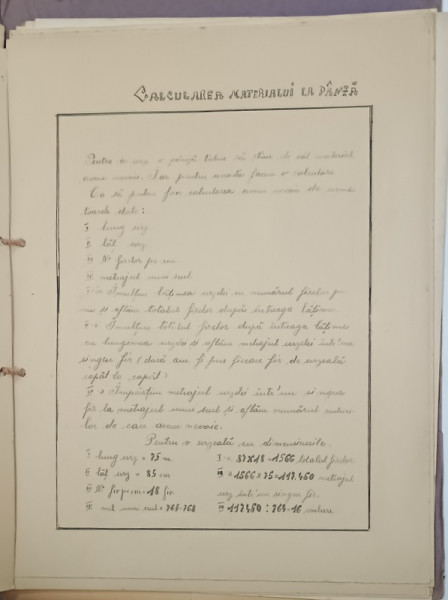 CALCULAREA MATERIALUI LA PÂNZĂ
Pentru a urzi o pânză trebue să știm de cât material
avem nevoie. Iar pentru aceasta facem o calculare.
Ca să putem face calcularea avem nevoie de urmă
toarele date:
I lung urz
II lăț urz
III Nº firelor pe cm
IV metrajul unui sul
I = Înmulțim lățimea urzelei cu numărul firelor pe
cm și aflăm totalul firelor după întreaga lățime
II = Înmulțim totalul firelor după întreaga lățime
cu lungimea urzelei și aflăm metrajul urzelei într'un
singur fir (dacă am fi pus fiecare fir de urzeală
capăt la capăt)
III = Împărțim metrajul urzelei într'un singur
fir la metrajul unui sul și aflăm numărul sulu
lor de care avem nevoie.
Pentru o urzeală cu dimensiunile
I lung urz = 75 m
II lăț urz = 85 cm
III Nº fir pe cm = 18 fir
IV met unui sul = 768.768
I = 87X18=1566 totalul firelor
II = 1566X75=117.450 metrajul
urz într'un singur fir.
III 117450:768=16